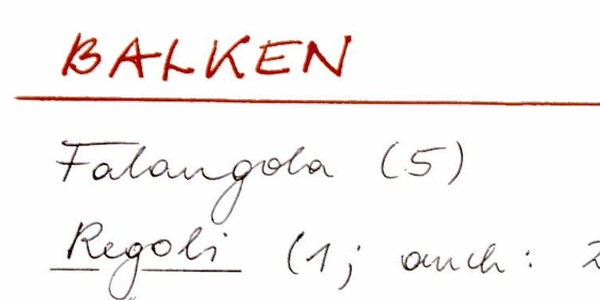 BALKEN
Falangola (5)
Regoli (1; auch: 2